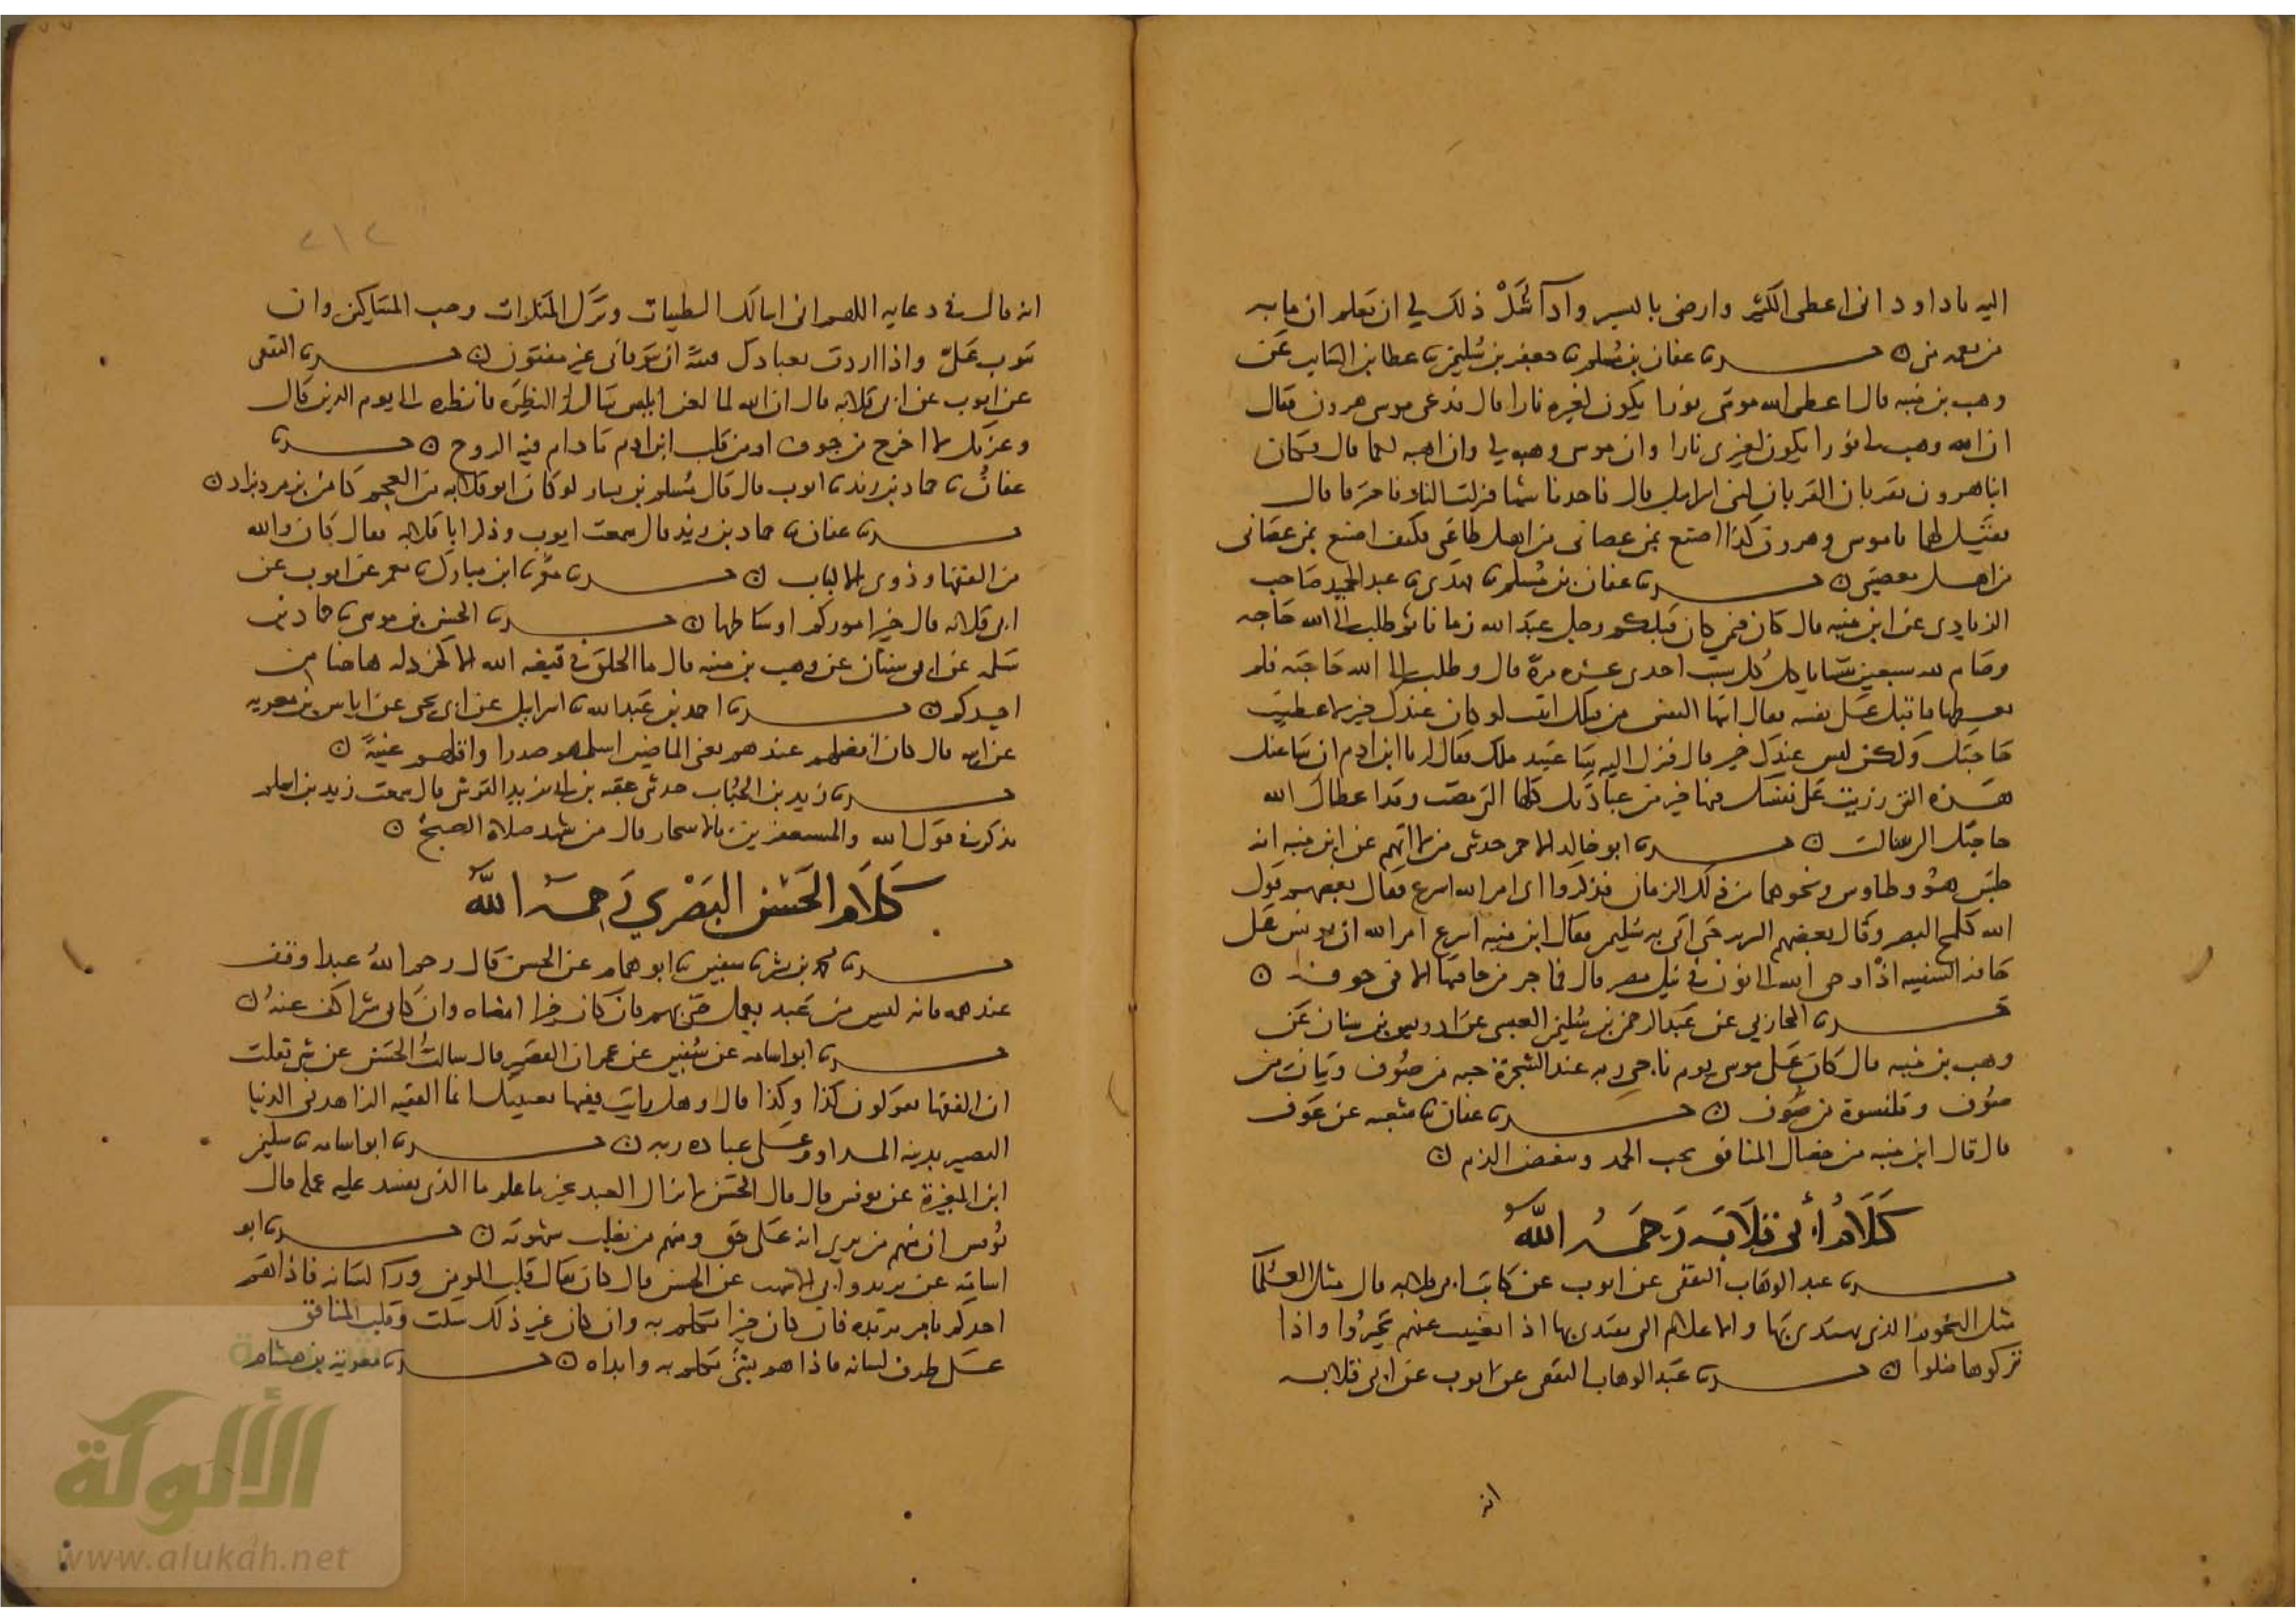 اليه يا داود انى اعطى الكثير وارضى باليسير وان شكر ذلك لي ان تعلم ان ما به
من نعمه منى ن حدثنا عفان بن مسلم نا جعفر بن سليمن نا عطا بن السايب عن
وهب بن منبه قال اعطى الله موسى نورا يكون لغيره نارا قال فدعى موسى هرون فقال
ان الله وهب لى نورا يكون لغيرى نارا وان موسى وهبه لي وان اهبه لكما قال وكان
ابنا هرون يقربان القربان لبنى اسرايل قال فاحدثا شيا فنزلت النار فاحرقا قال
فقيل لهما يا موسى وهرون كذا اصنع بمن عصانى من اهل طاعتى فكيف اصنع بمن عصانى
من اهل معصيتى ن حدثنا عفان بن مسلم نا عبد الحميد صاحب
الزيادى عن ابن منبه قال كان فيمن كان قبلكم رجل عبد الله زمانا ثم طلب الى الله حاجه
وصام لله سبعين سبتا ياكل كل سبت احدى عشره تمرة قال وطلب الى الله حاجته فلم
يعطها فاقبل على نفسه فقال ايتها النفس من قبلك اتيت لو كان عندك خير لاعطيت
حاجتك ولكن ليس عندك خير قال فنزل اليه ساعتيد ملك فقال له يا ابن ادم ان ساعتك
هذه التى زريت على نفسك فيها خير من عبادتك كلها التى مضت وقد اعطاك الله
حاجتك التى سالت ن حدثنا ابو خالد الاحمر حدثنى من لا اتهم عن ابن منبه انه
جلس هو وطاوس ونحوهما من ذلك الزمان فذكروا اى امر الله اسرع فقال بعضهم قول
الله كلمح البصر وقال بعضهم السرير حين اتى به سليمن فقال ابن منبه اسرع امر الله ان يونس على
حافة السفينه اذ اوحى الله الى نون فى نيل مصر قال فما خر من حافتها الا فى جوفه ن
حدثنا المحاربي عن عبد الرحمن بن سليمن العبسى عن ادريس بن سنان عن
وهب بن منبه قال كان على موسى يوم ناجى ربه عند الشجرة جبه من صوف وتبان من
صوف وقلنسوة من صوف ن حدثنا عفان نا شعبه عن عوف
قال قال ابن منبه من خصال المنافق يحب الحمد ويبغض الذم ن
كلام أبي قلابه رحمه الله
حدثنا عبد الوهاب الثقفى عن ايوب عن كتاب ابى قلابه قال مثل العلما
مثل النجوم الذى يهتدى بها والاعلام التى يقتدى بها اذا تغيبت عنهم تحيروا واذا
تركوها ضلوا ن حدثنا عبد الوهاب الثقفى عن ايوب عن ابى قلابه
انه
٢١٢
انه قال فى دعايه اللهم انى اسالك الطيبات وترك المنكرات وحب المساكين وان
تتوب على واذا اردت بعبادك فتنة ان توفانى غير مفتون ن حدثنا الثقفى
عن ايوب عن ابى قلابه قال ان الله لما لعن ابليس سال النظره فانظره الى يوم الدين قال
وعزتك لا اخرج من جوف او من قلب ابن ادم ما دام فيه الروح ن حدثنا
عفان نا حماد بن زيد نا ايوب قال قال مسلم بن يسار لو كان ابو قلابه من العجم كان
حدثنا عفان نا حماد بن زيد قال سمعت ايوب وذكر ابا قلابه فقال كان والله
من الفقها ذوى الالباب ن حدثنا ابن مبارك نا معمر عن ايوب عن
ابى قلابه قال خير اموركم اوساطها ن حدثنا الحسن بن موسى نا حماد بن
سلمه عن ابى سنان عن وهب بن منبه قال ما الخلق فى قبضه الله الا كخردله هاهنا من
احدكم ن حدثنا احمد بن عبد الله نا اسرايل عن ابى يحى عن اياس بن معويه
عن ابيه قال كان افضلهم عندهم يعنى الماضين اسلمهم صدرا واقلهم غيبة ن
حدثنا زيد بن الحباب حدثنى عقبه بن القرشى قال سمعت زيد بن اسلم
يذكر فى قول الله والمستغفرين بالاسحار قال من شهد صلاة الصبح ن
كلام الحسن البصري رحمه الله
حدثنا محمد بن بشر نا سفين نا ابو همام عن الحسن قال رحم الله عبدا وقف
عند همه فانه ليس من عبد يعمل حتى يهم فان كان خيرا امضاه وان كان شرا كف عنه ن
حدثنا ابو اسامه عن سفين عن عمران القصير قال سالت الحسن عن شى فقلت
ان الفقها يقولون كذا وكذا قال وهل رايت فقيها بعينيك انما الفقيه الزاهد فى الدنيا
البصير بدينه المداوم على عباده ربه ن حدثنا ابو اسامه نا سليمن
ابن المغيرة عن يونس قال قال الحسن لا يزال العبد بخير ما علم ما الذى يفسد عليه عمله قال
يونس ان منهم من يرى انه على حق ومنهم من تغلبه شهوته ن حدثنا ابو
اسامه عن يزيد وابى الاشهب عن الحسن قال كان يقال قلب المومن ورا لسانه فاذا هم
احدكم بامر تدبره فان كان خيرا تكلم به وان كان غير ذلك سكت وقلب المنافق
على طرف لسانه فاذا هم بشى تكلم به وابداه ن حدثنا معويه بن هشام
الألوكة
www.alukah.net